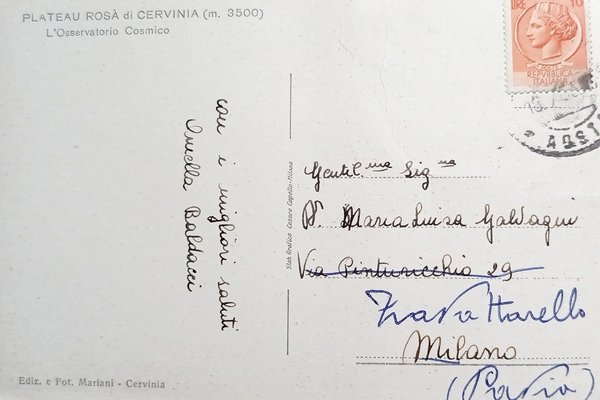 PLATEAU ROSÀ di CERVINIA (m. 3500)
L'Osservatorio Cosmico
LIRE 10
REPVBBLICA
ITALIANA
AOSTA
con i migliori saluti
Ornella Baldacci
Stab. Grafico Cesare Capello - Milano
Gentil.ma Sig.na
Maria Luisa Galvagni
Via Pinturicchio 29
Travà
Milano
(Pavia)
Ediz. e Fot. Mariani - Cervinia